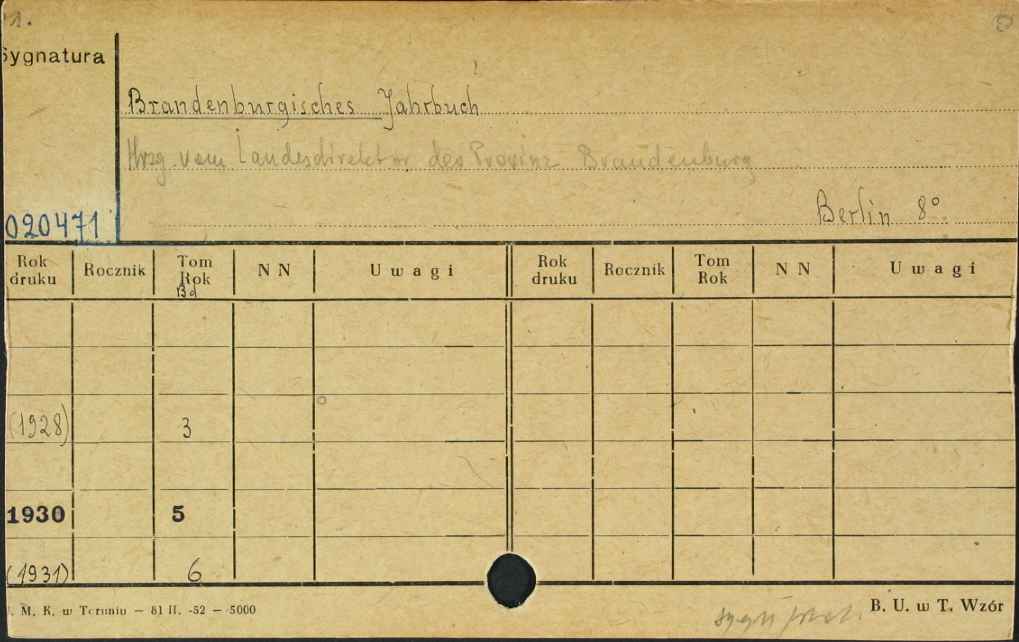 1.
Sygnatura
Brandenburgisches Jahrbuch
Hrsg. vom Landesdirektor der Provinz Brandenburg
020471
Berlin 8°.
Rok druku Rocznik Tom Rok Bd NN Uwagi Rok druku Rocznik Tom Rok NN Uwagi
(1928) 3
1930 5
(1931) 6
. M. K. w Toruniu — 81 II. -52 — 5000
B. U. w T. Wzór